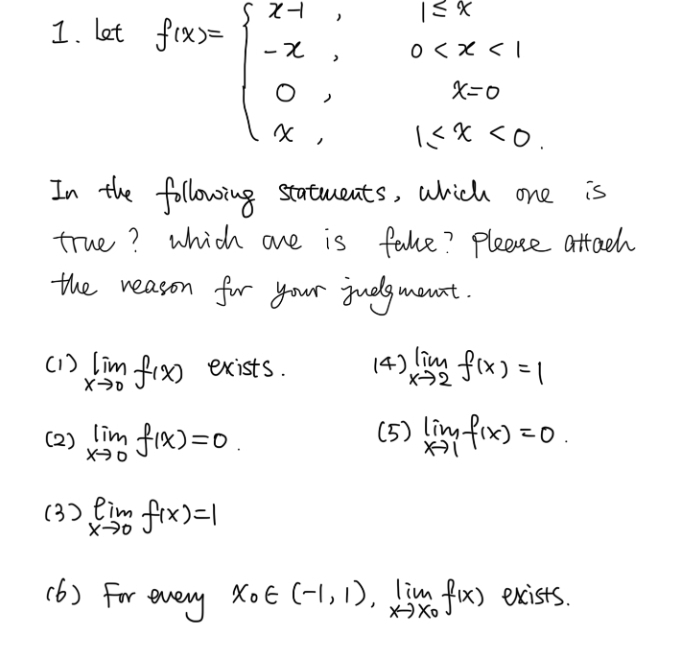 1. Let f(x)= { x-1 , 1≤x
-x , 0<x<1
0 , x=0
x , 1≤x<0.
In the following statments, which one is
true? which one is false? Please attach
the reason for your judgment.
(1) lim x→0 f(x) exists. (4) lim x→2 f(x)=1
(2) lim x→0 f(x)=0. (5) lim x→1 f(x)=0.
(3) lim x→0 f(x)=1
(6) For every x₀∈(-1,1), lim x→x₀ f(x) exists.